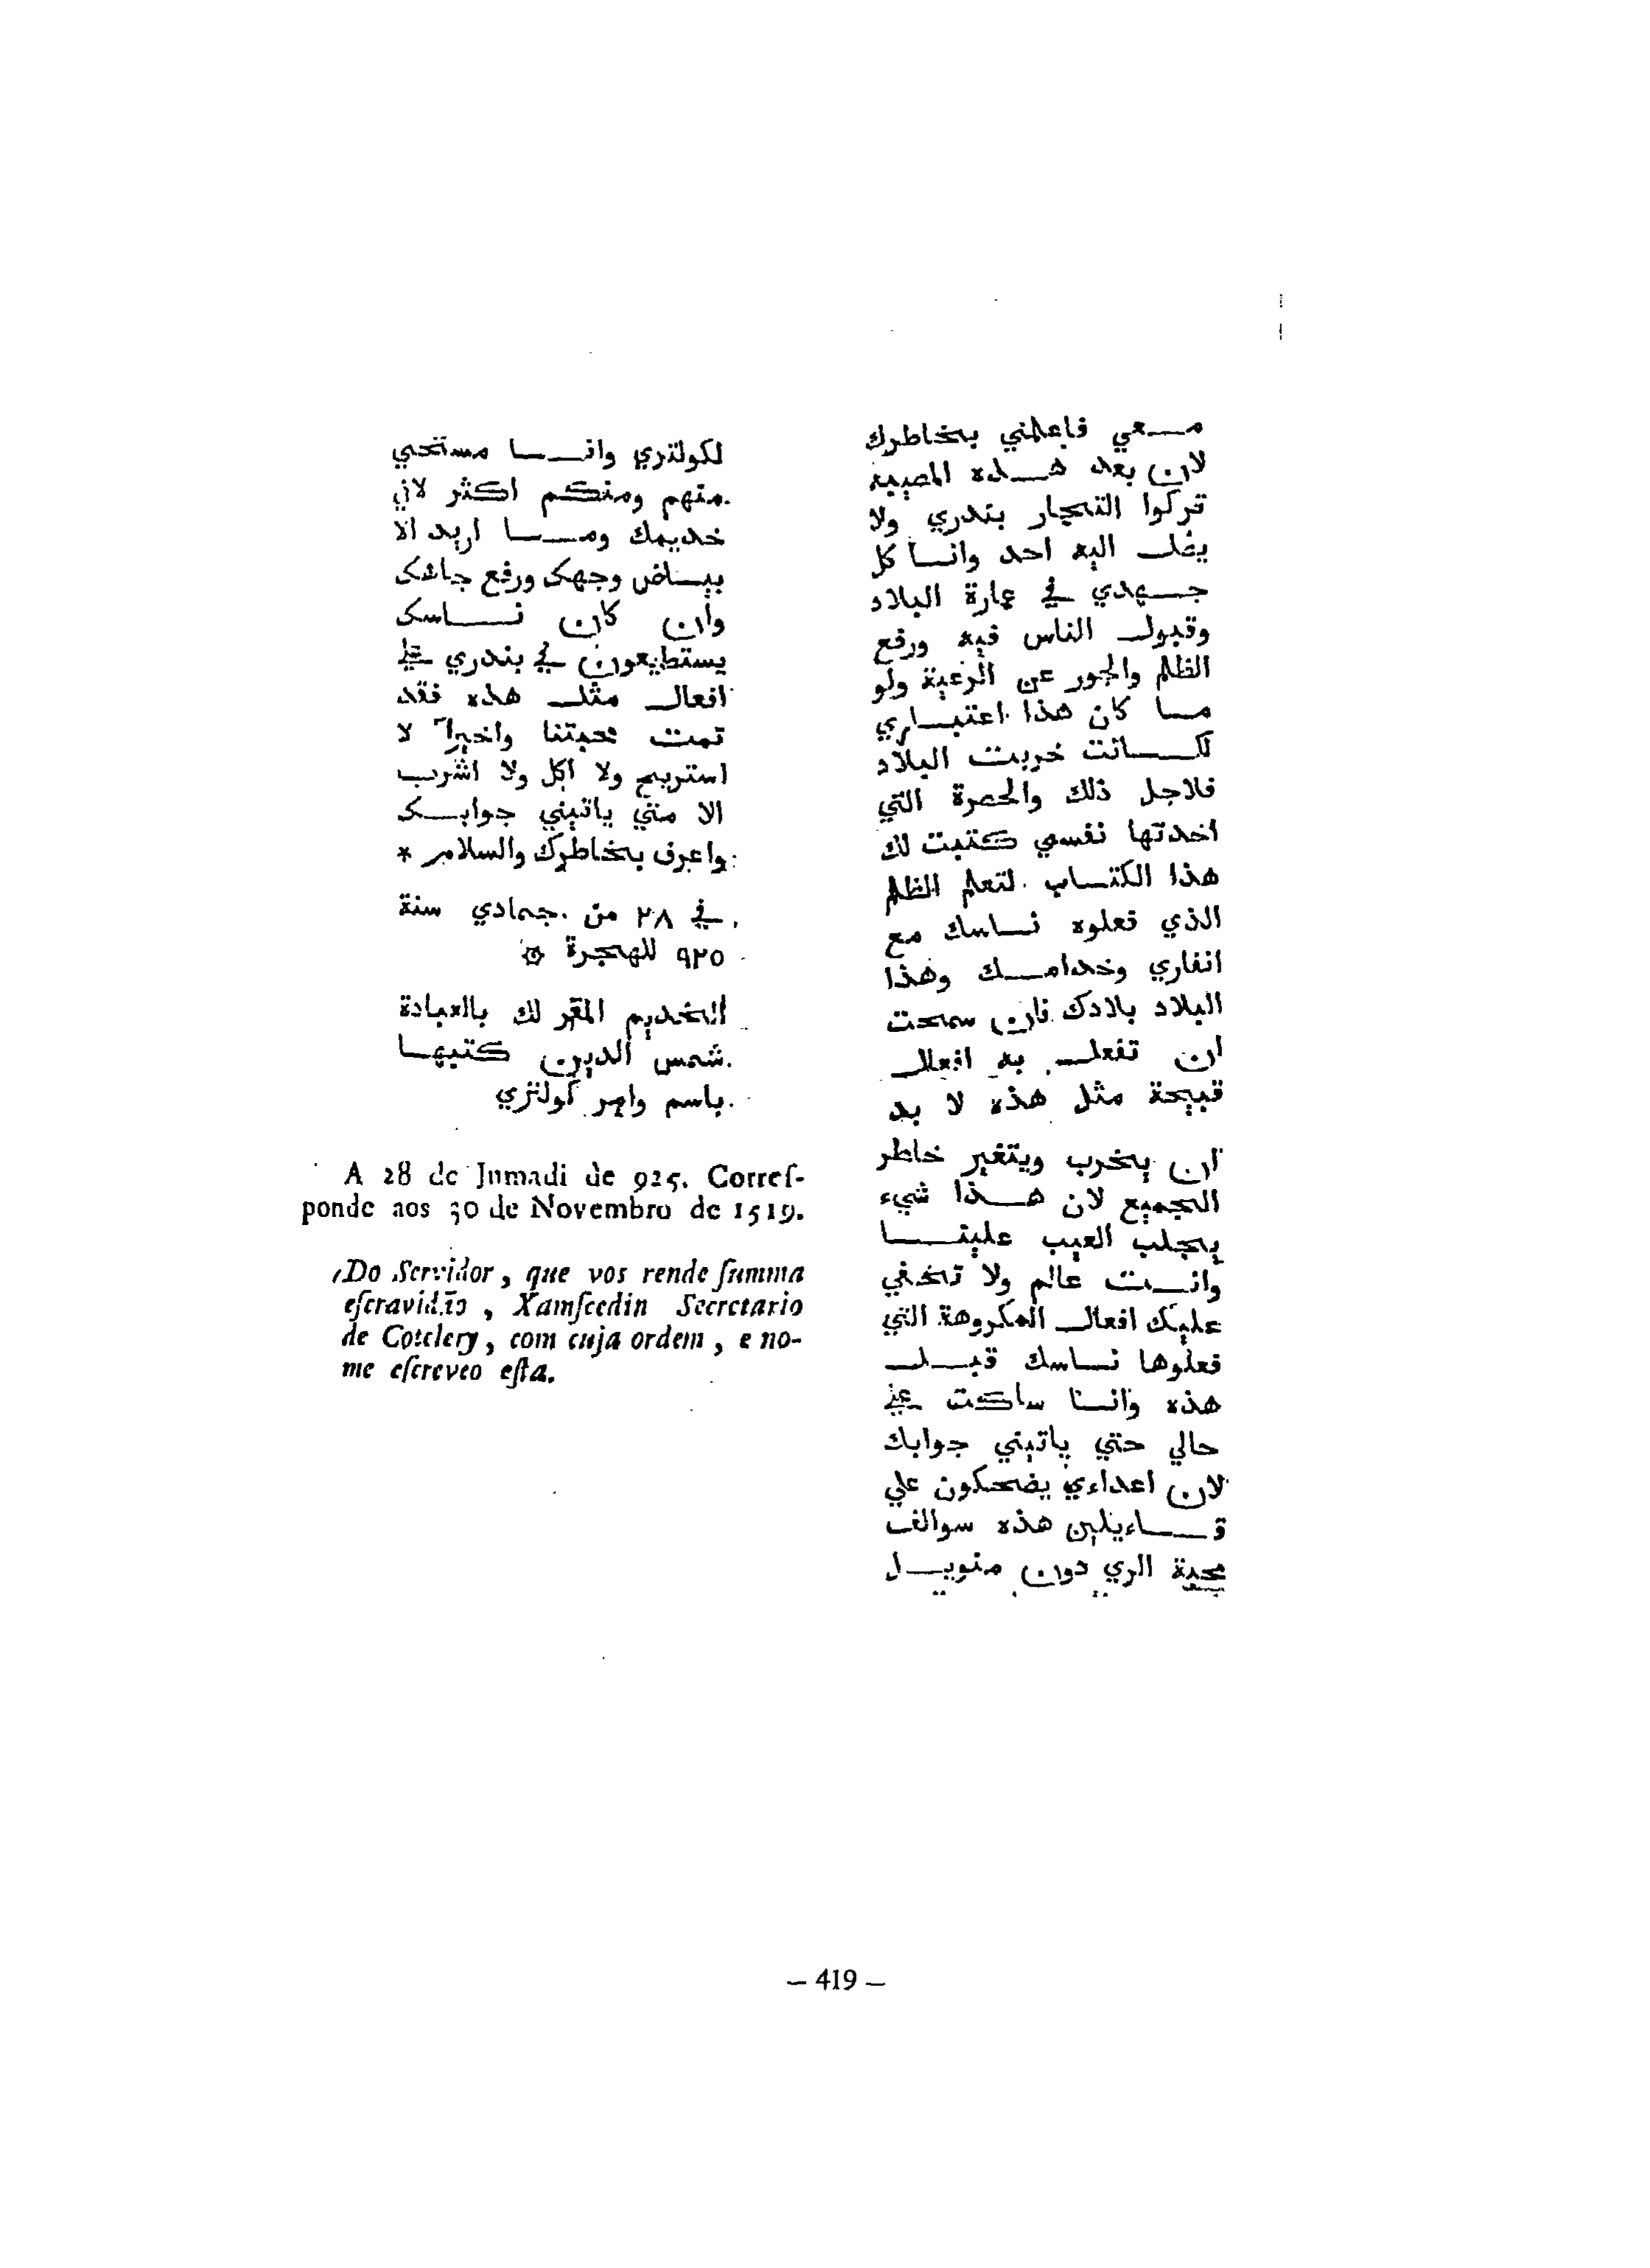 مـعي فاعلمني بخاطرك
لان بعد هـذه المصيبه
تركوا التجار بندري ولا
يقلـ اليه احد وانـا كل
جـهدي في عمارة البلاد
وقبولـ الناس فيه ورفع
الظلم والجور عن الرعية ولو
مـا كان هذا اعتبـاري
لكـانت خربت البلاد
فلاجل ذلك والحصرة التي
اخدتها نفسي كتبت لك
هذا الكتـاب لتعلم الظلم
الذي فعلوه نـاسك مع
انفاري وخدامـك وهذا
البلاد بلادك فان سمحت
ان تفعلـ به افعالـ
قبيحة مثل هذه لا بد
ان يخرب ويتغير خاطر
الجميع لان هـذا شيء
يجلب العيب علينـا
وانـت عالم ولا تخفي
عليك افعالـ المكروهة التي
فعلوها نـاسك قبـلـ
هذه وانـا ساكت علي
حالي حتي ياتيني جوابك
لان اعداءي يضحكون علي
قـاءيلين هذه سوالف
محبة الري دون منويـل
لكولتري وانـا مستحي
منهم ومنكم اكثر لاني
خديمك ومـا اريد الا
بيـاض وجهك ورفع جاشك
وان كان نـاسك
يستطيعون في بندري علي
افعالـ مثلـ هذه فقد
تمت محبتنا واخيراً لا
استريح ولا اكل ولا اشرب
الا متي ياتيني جوابـك
واعرف بخاطرك والسلام *
في ٢٨ من جمادي سنة
٩٢٥ للهجرة ۞
الخديم المقر لك بالعبادة
شمس الدين كتبهـا
باسم وامر كولتري
A 28 de Jumadi de 925. Corres-
ponde aos 30 de Novembro de 1519.
Do Servidor, que vos rende ſumma
eſcravidão, Xamſeedin Secretario
de Cotelery, com cuja ordem, e no-
me eſcreveo eſta.
– 419 –